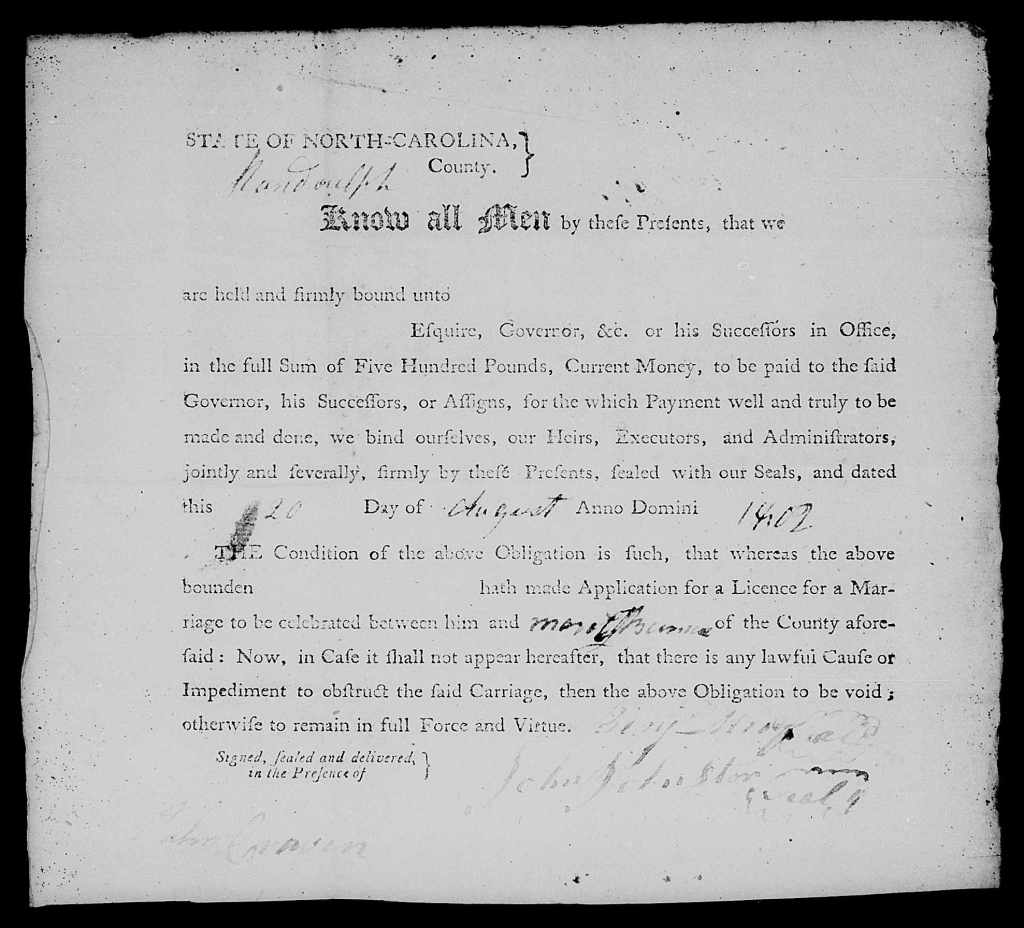 STATE OF NORTH-CAROLINA,
Randoulph County.
Know all Men by theſe Preſents, that we
are held and firmly bound unto
Eſquire, Governor, &c. or his Succeſſors in Office,
in the full Sum of Five Hundred Pounds, Current Money, to be paid to the ſaid
Governor, his Succeſſors, or Aſſigns, for the which Payment well and truly to be
made and done, we bind ourſelves, our Heirs, Executors, and Adminiſtrators,
jointly and ſeverally, firmly by theſe Preſents, ſealed with our Seals, and dated
this 20 Day of August Anno Domini 1802
THE Condition of the above Obligation is ſuch, that whereas the above
bounden hath made Application for a Licence for a Mar-
riage to be celebrated between him and of the County afore-
ſaid: Now, in Caſe it ſhall not appear hereafter, that there is any lawful Cauſe or
Impediment to obſtruct the ſaid Carriage, then the above Obligation to be void;
otherwiſe to remain in full Force and Virtue. Benj
Signed, ſealed and delivered,
in the Preſence of
John Johnston
Seal
Craven